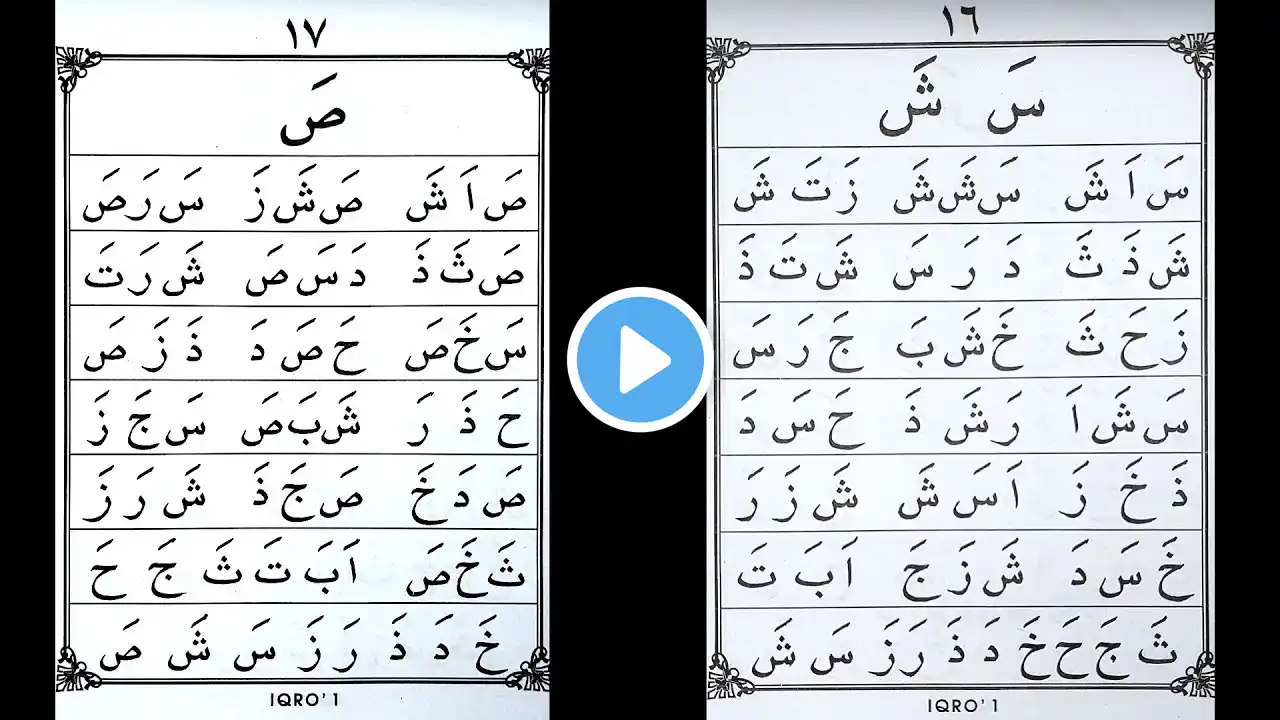 ١٦
سَ شَ
سَ اَ شَ سَ شَ شَ زَ تَ شَ
شَ ذَ ثَ دَ رَ سَ شَ تَ ذَ
زَ حَ ثَ خَ شَ بَ جَ رَ سَ
سَ شَ اَ رَ شَ ذَ حَ سَ دَ
ذَ خَ زَ اَ سَ شَ شَ زَ رَ
خَ سَ دَ شَ زَ جَ اَ بَ تَ
ثَ جَ حَ خَ دَ ذَ رَ زَ سَ شَ
IQRO' 1
١٧
صَ
صَ اَ شَ صَ شَ زَ سَ رَ صَ
صَ ثَ ذَ دَ سَ صَ شَ رَ تَ
سَ خَ صَ حَ صَ دَ ذَ زَ صَ
حَ ذَ رَ شَ بَ صَ سَ جَ زَ
صَ دَ خَ صَ جَ ذَ شَ رَ زَ
ثَ خَ صَ اَ بَ تَ ثَ جَ حَ
خَ دَ ذَ رَ زَ سَ شَ صَ
IQRO' 1